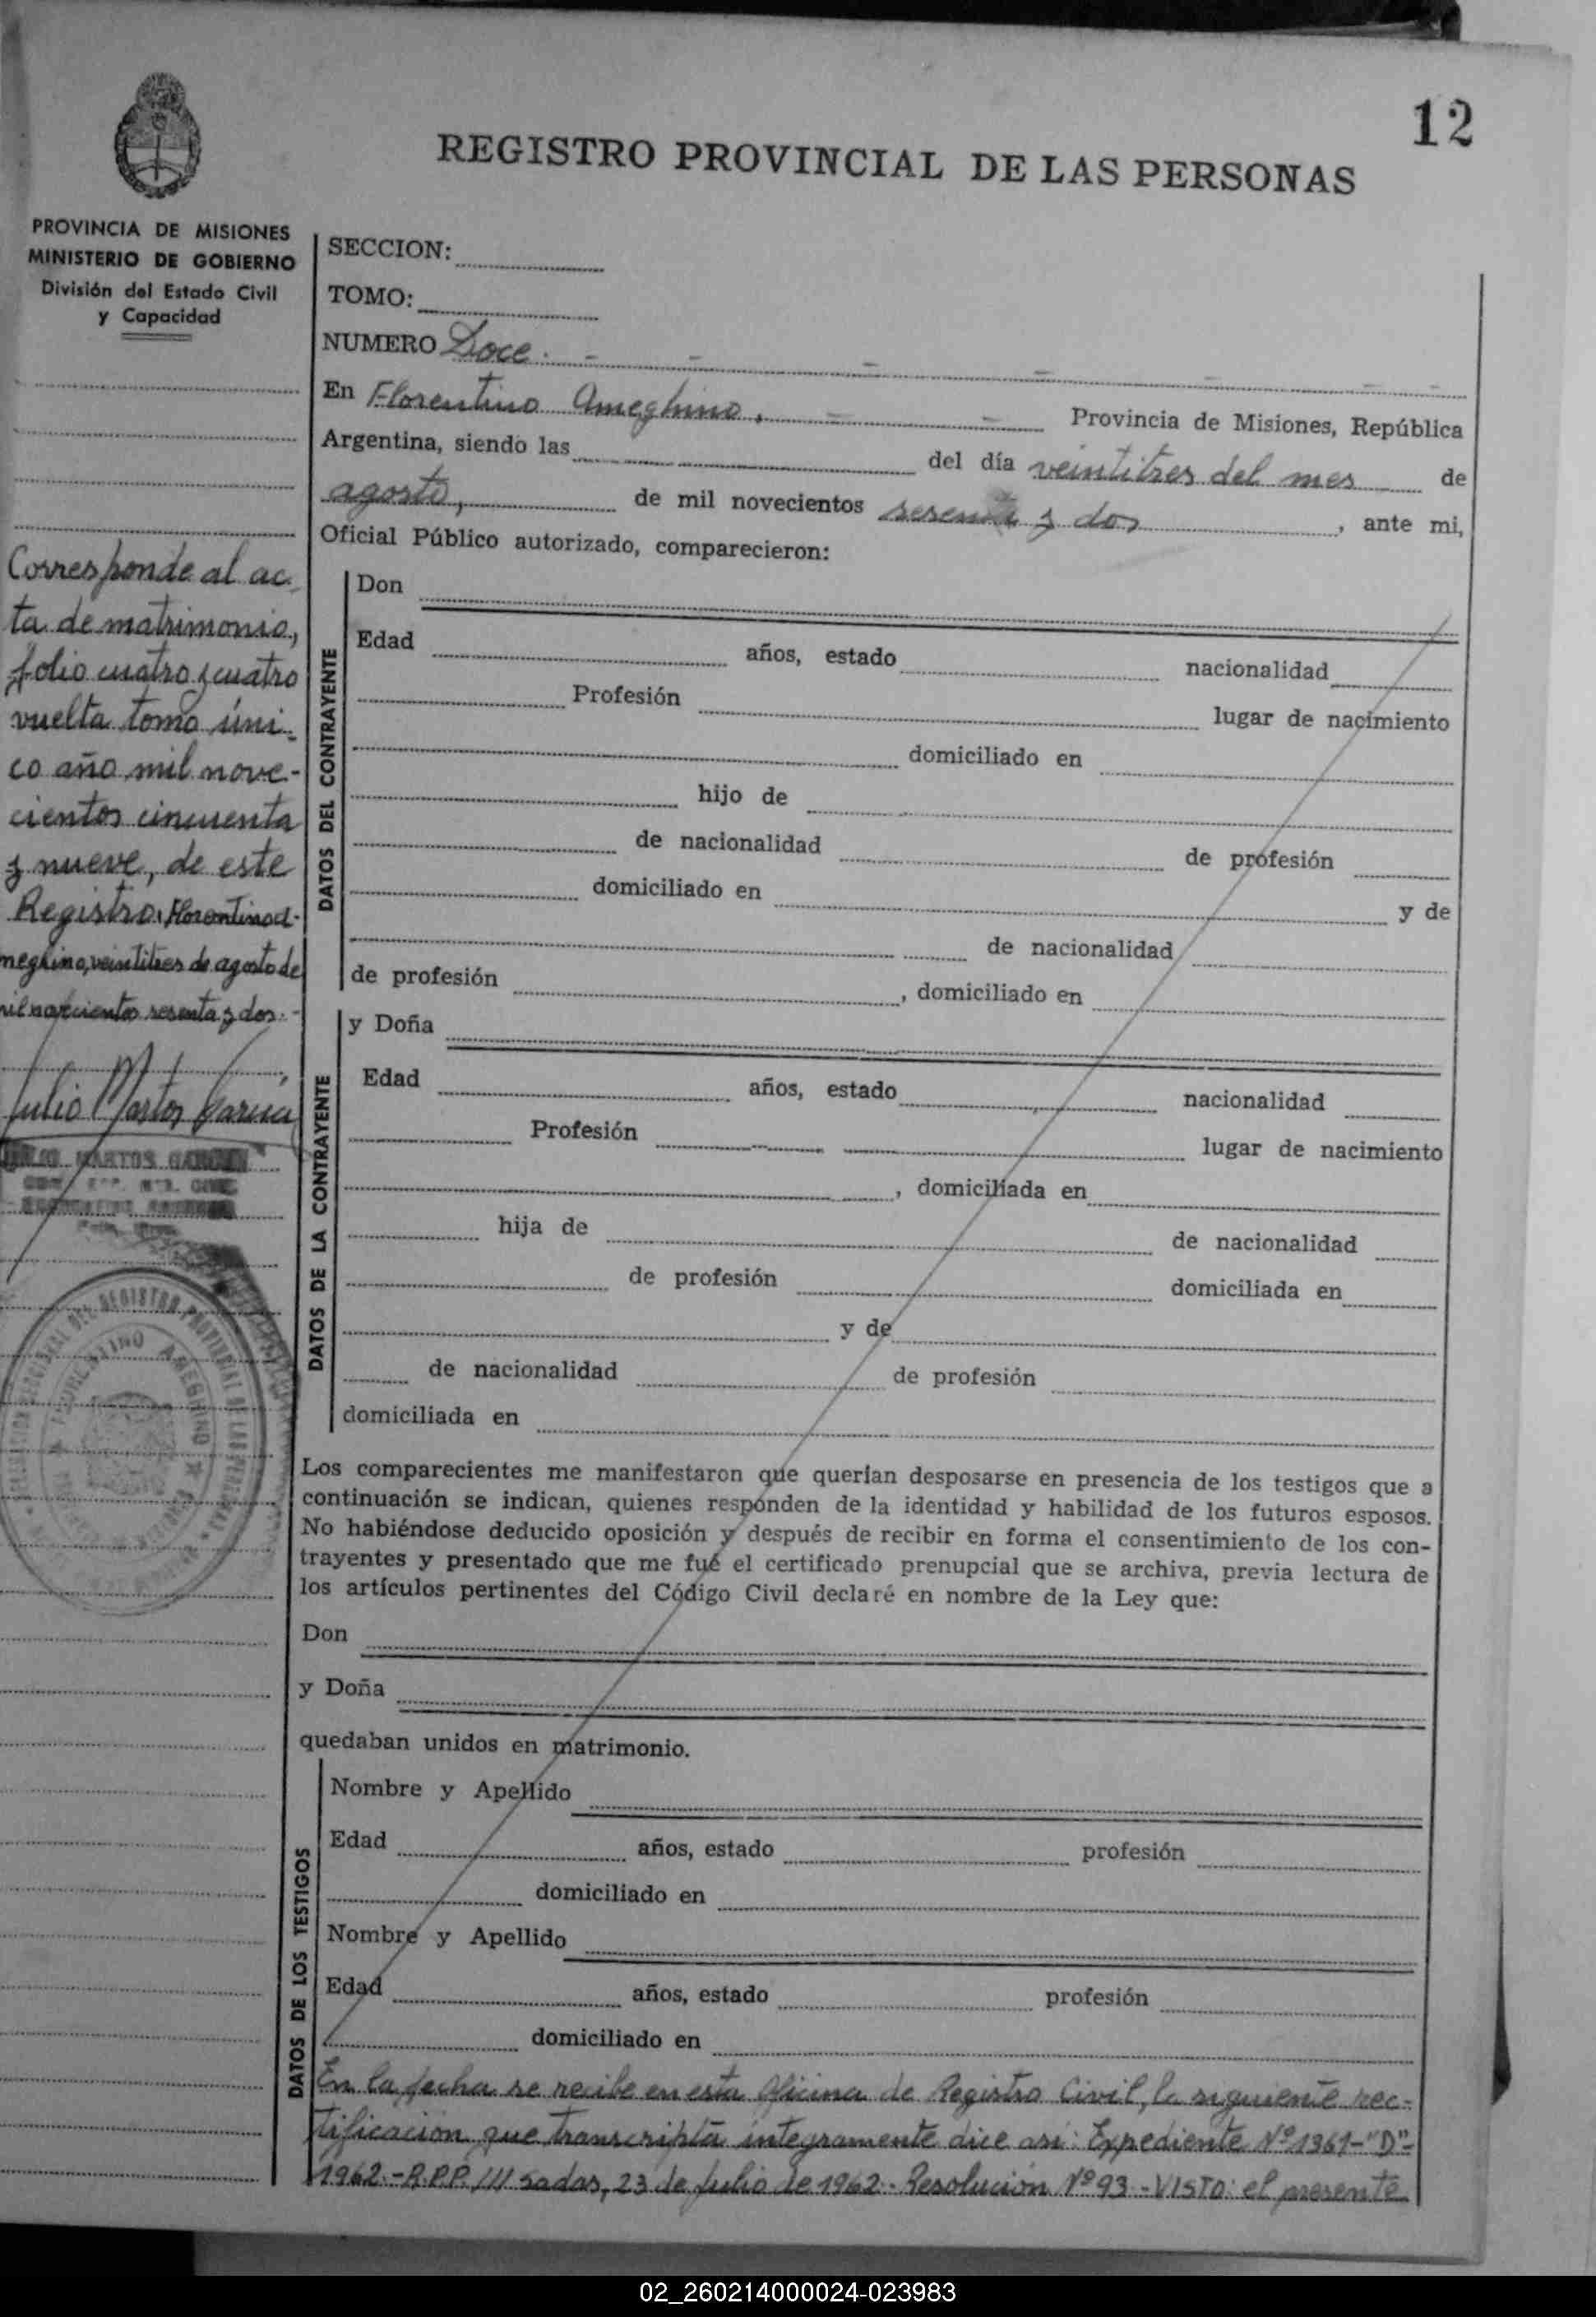 12
REGISTRO PROVINCIAL DE LAS PERSONAS
PROVINCIA DE MISIONES
MINISTERIO DE GOBIERNO
División del Estado Civil
y Capacidad
Corresponde al ac-
ta de matrimonio,
folio cuatro y cuatro
vuelta tomo úni-
co año mil nove-
cientos cincuenta
y nueve, de este
Registro. Florentino A-
meghino, veintitres de agosto de
mil novecientos sesenta y dos.-
Julio Martos García
MARTOS GARCIA
DEL REGISTRO PROVINCIAL DE LAS PERSONAS
FLORENTINO AMEGHINO
SECCION:
TOMO:
NUMERO Doce. - - - - - - -
En Florentino Ameghino, - - Provincia de Misiones, República
Argentina, siendo las del día veintitres del mes de
agosto, de mil novecientos sesenta y dos, ante mi,
Oficial Público autorizado, comparecieron:
DATOS DEL CONTRAYENTE
Don
Edad años, estado nacionalidad
Profesión lugar de nacimiento
domiciliado en
hijo de
de nacionalidad de profesión
domiciliado en y de
de nacionalidad
de profesión , domiciliado en
DATOS DE LA CONTRAYENTE
y Doña
Edad años, estado nacionalidad
Profesión lugar de nacimiento
, domiciliada en
hija de de nacionalidad
de profesión domiciliada en
y de
de nacionalidad de profesión
domiciliada en
Los comparecientes me manifestaron que querían desposarse en presencia de los testigos que a
continuación se indican, quienes responden de la identidad y habilidad de los futuros esposos.
No habiéndose deducido oposición y después de recibir en forma el consentimiento de los con-
trayentes y presentado que me fué el certificado prenupcial que se archiva, previa lectura de
los artículos pertinentes del Código Civil declaré en nombre de la Ley que:
Don
y Doña
quedaban unidos en matrimonio.
DATOS DE LOS TESTIGOS
Nombre y Apellido
Edad años, estado profesión
domiciliado en
Nombre y Apellido
Edad años, estado profesión
domiciliado en
En la fecha se recibe en esta Oficina de Registro Civil, la siguiente rec-
tificación que transcripta integramente dice así: Expediente Nº 1361-"D"-
1962.-R.P.P./// sadas, 23 de Julio de 1962.- Resolución Nº 93.-VISTO: el presente
02_260214000024-023983